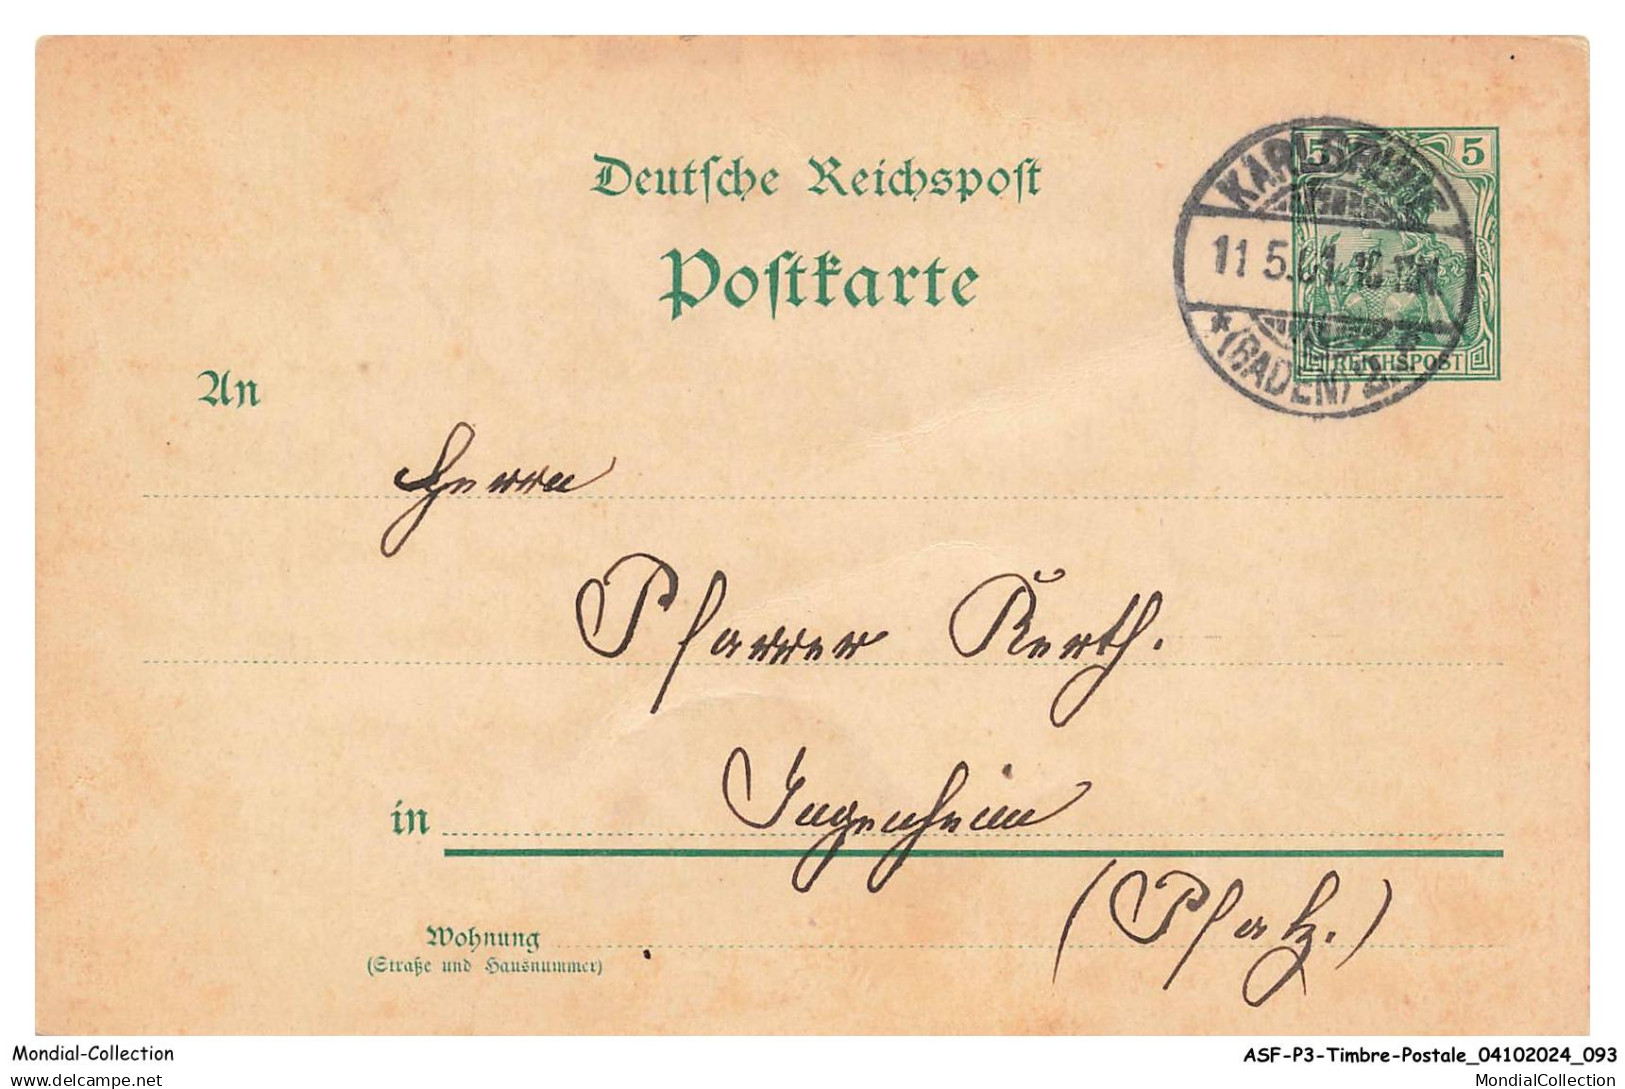 Deutsche Reichspost
Postkarte
5 5
KARLSRUHE
11 5.01. 10-12V.
*(BADEN) 2. *
REICHSPOST
An
Herrn
Pfarrer Kerth.
in Ingenheim
(Pfalz.)
Wohnung
(Straße und Hausnummer)
Mondial-Collection
ASF-P3-Timbre-Postale_04102024_093
delcampe.net
MondialCollection